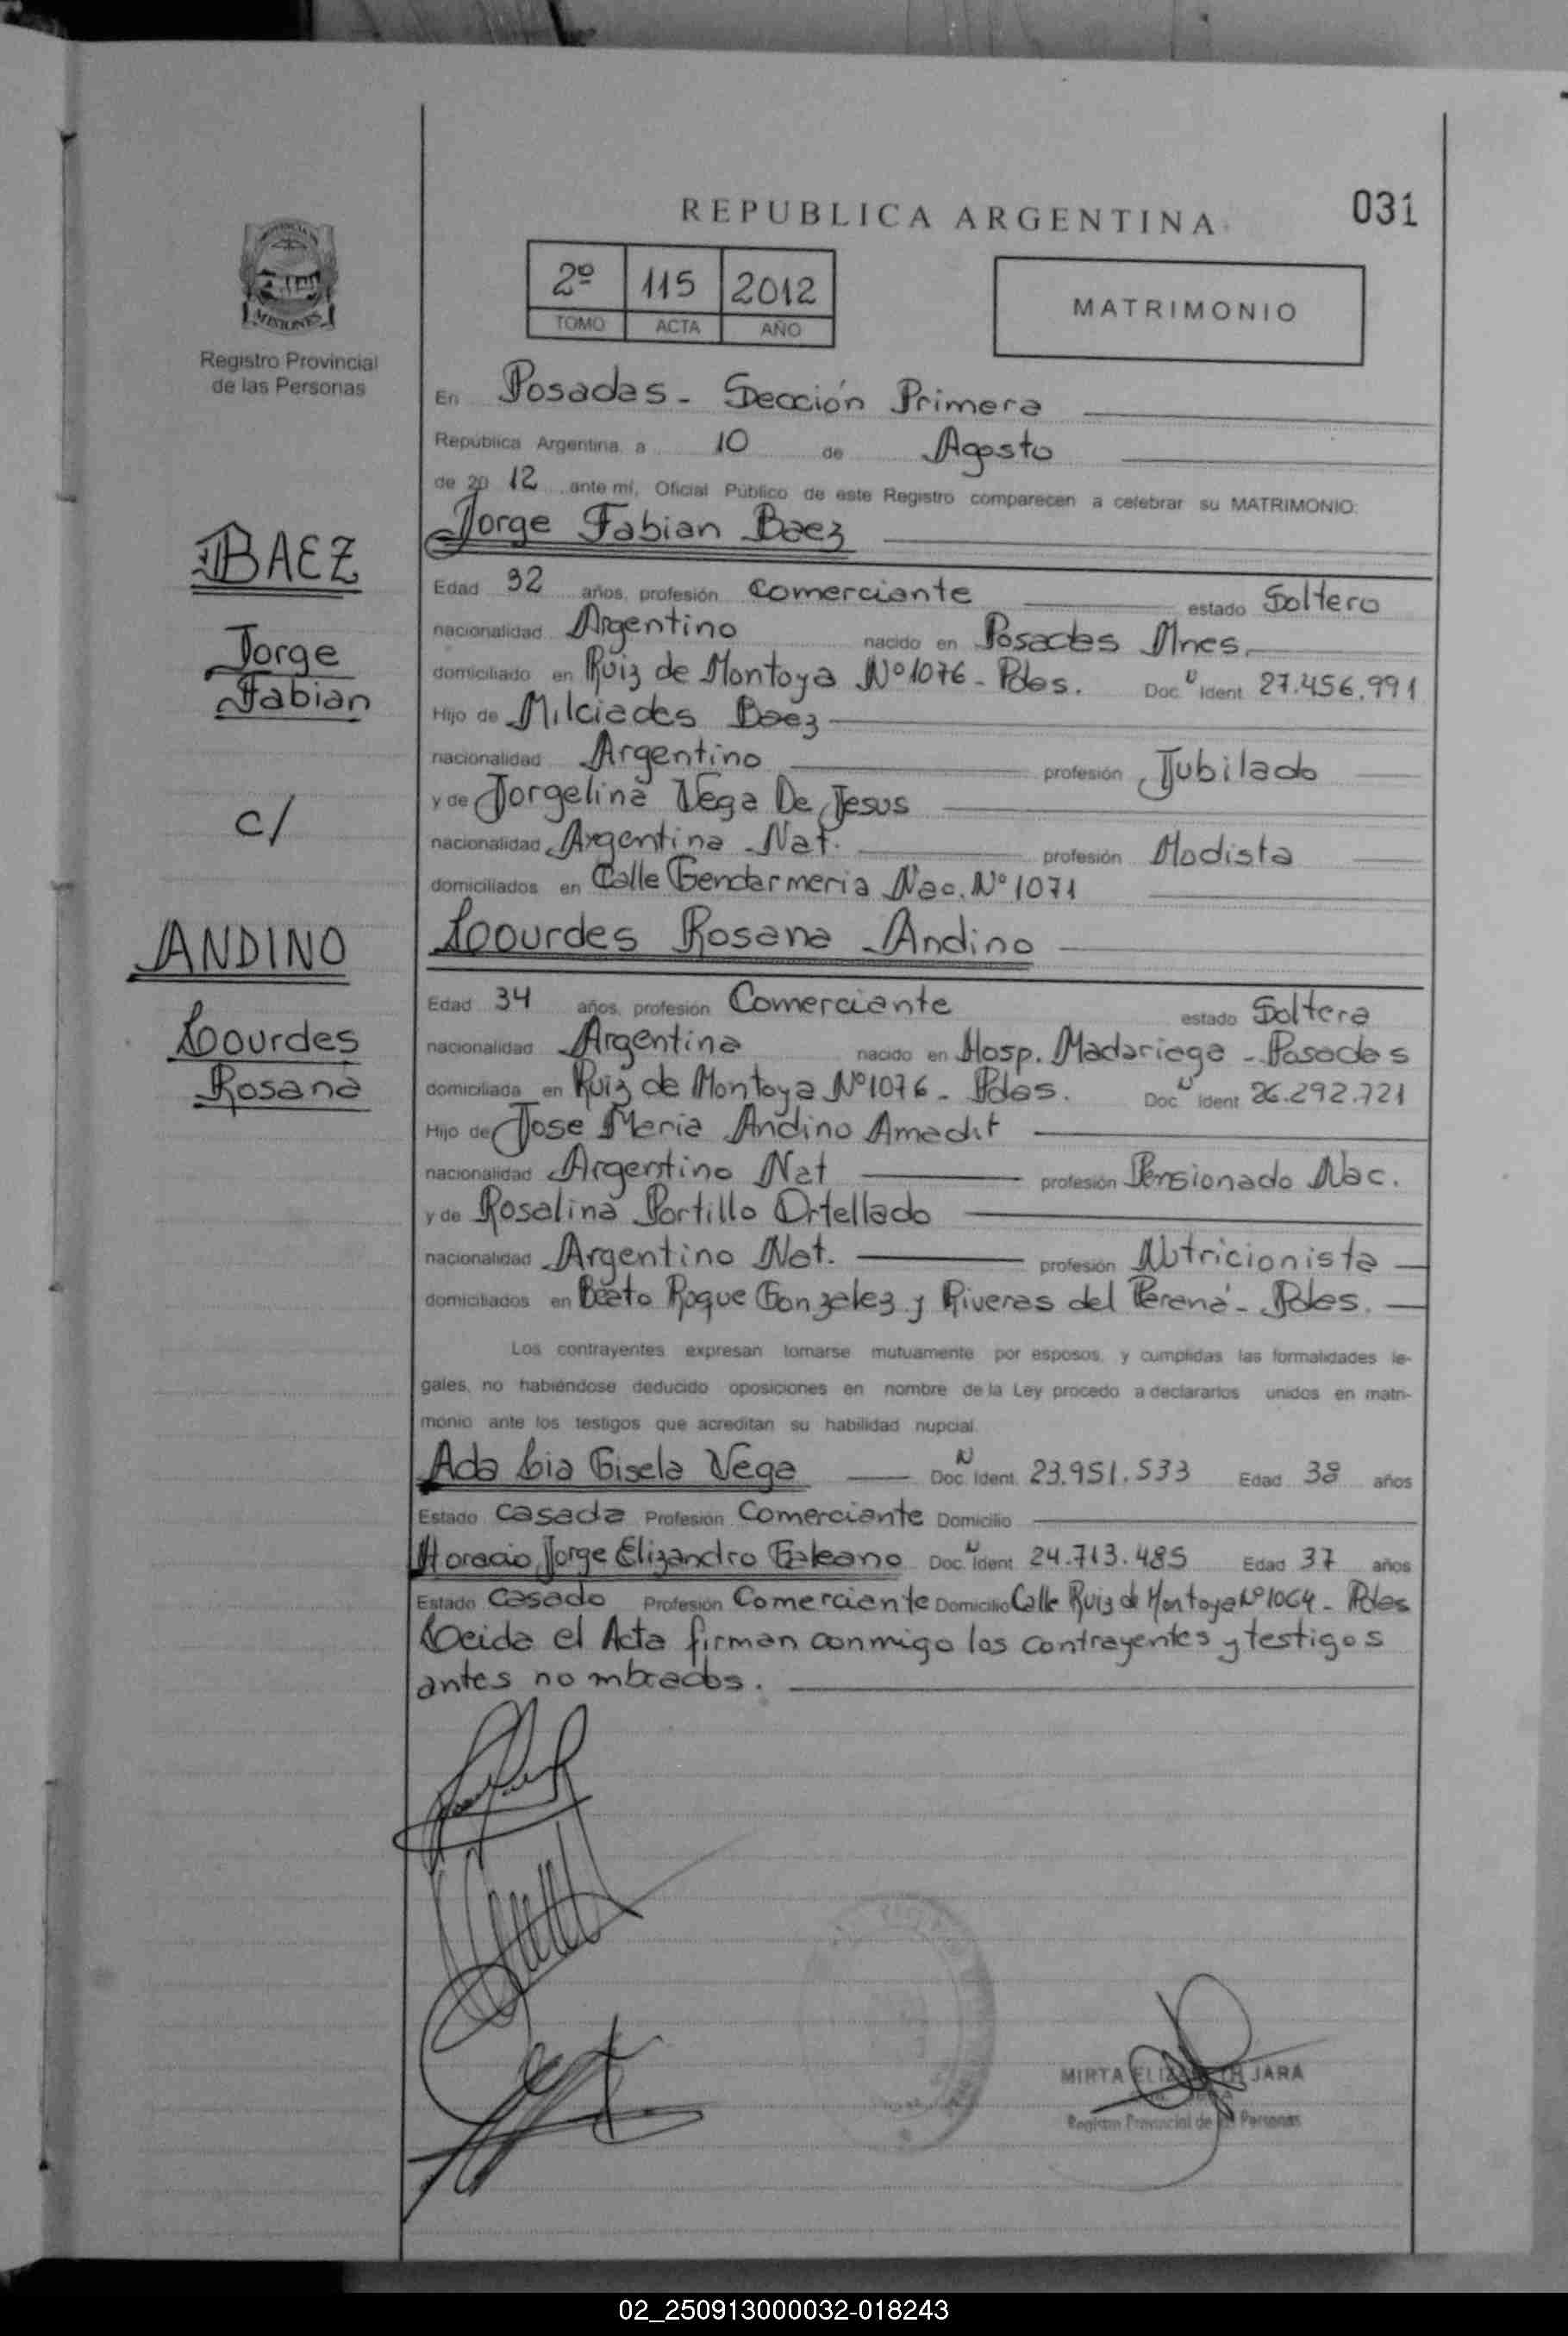 REPUBLICA ARGENTINA
031
PROVINCIA DE
MISIONES
Registro Provincial
de las Personas
2º 115 2012
TOMO ACTA AÑO
MATRIMONIO
En Posadas - Sección Primera
República Argentina, a 10 de Agosto
de 20 12 ante mí, Oficial Público de este Registro comparecen a celebrar su MATRIMONIO:
Jorge Fabian Baez
BAEZ
Jorge
Fabian
c/
ANDINO
Lourdes
Rosana
Edad 32 años, profesión comerciante estado Soltero
nacionalidad Argentino nacido en Posadas Mnes.
domiciliado en Ruiz de Montoya Nº 1076 - Pdas. Doc. U Ident 27.456.991
Hijo de Milciades Baez
nacionalidad Argentino profesión Jubilado
y de Jorgelina Vega De Jesus
nacionalidad Argentina Nat. profesión Modista
domiciliados en Calle Gendarmeria Nac. Nº 1071
Lourdes Rosana Andino
Edad 34 años, profesión Comerciante estado Soltera
nacionalidad Argentina nacido en Hosp. Madariaga - Posadas
domiciliada en Ruiz de Montoya Nº 1076 - Pdas. Doc. U Ident 26.292.721
Hijo de Jose Maria Andino Amacht
nacionalidad Argentino Nat profesión Pensionado Nac.
y de Rosalina Portillo Ortellado
nacionalidad Argentino Nat. profesión Nutricionista
domiciliados en Beato Roque Gonzalez y Riveras del Paraná - Pdas.
Los contrayentes expresan tomarse mutuamente por esposos, y cumplidas las formalidades le-
gales, no habiéndose deducido oposiciones en nombre de la Ley procedo a declararlos unidos en matri-
monio ante los testigos que acreditan su habilidad nupcial.
Ada Lia Gisela Vega Doc. N Ident. 23.951.533 Edad 38 años
Estado Casada Profesión Comerciante Domicilio
Horacio Jorge Elizandro Galeano Doc. N Ident 24.713.485 Edad 37 años
Estado Casado Profesión Comerciante Domicilio Calle Ruiz de Montoya Nº 1064 - Pdas
Leida el Acta firman conmigo los contrayentes y testigos
antes nombrados.
MIRTA ELIZABETH JARA
Registro Provincial de las Personas
02_250913000032-018243